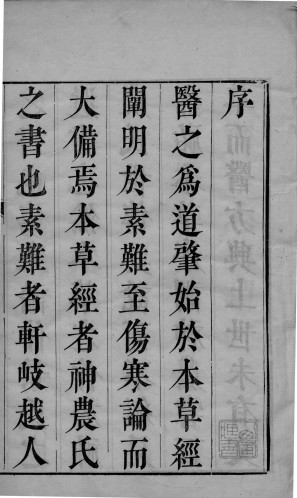 序
醫之爲道肇始於本草經
闡明於素難至傷寒論而
大備焉本草經者神農氏
之書也素難者軒岐越人